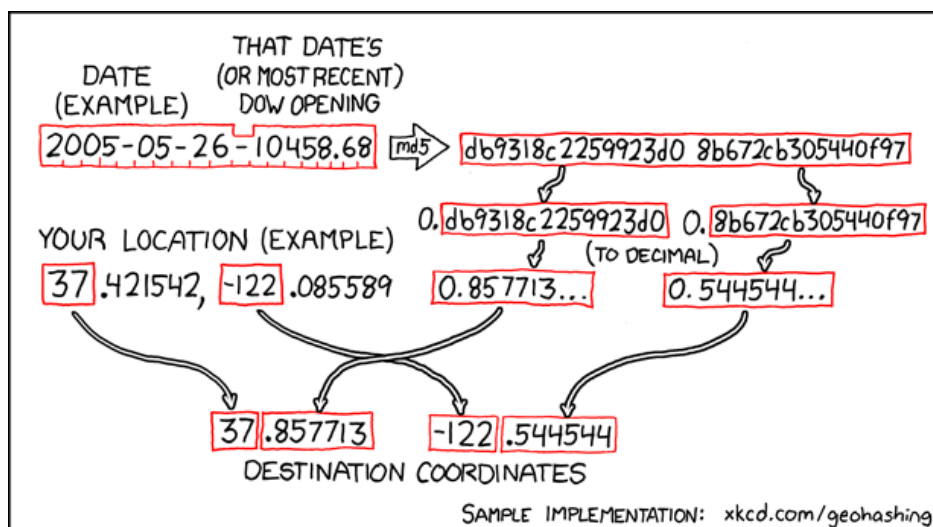 DATE
(EXAMPLE)
THAT DATE'S
(OR MOST RECENT)
DOW OPENING
2005-05-26-10458.68
md5
db9318c2259923d0 8b672cb305440f97
0.db9318c2259923d0 0.8b672cb305440f97
(TO DECIMAL)
YOUR LOCATION (EXAMPLE)
37.421542, -122.085589
0.857713... 0.544544...
37.857713 -122.544544
DESTINATION COORDINATES
SAMPLE IMPLEMENTATION: xkcd.com/geohashing